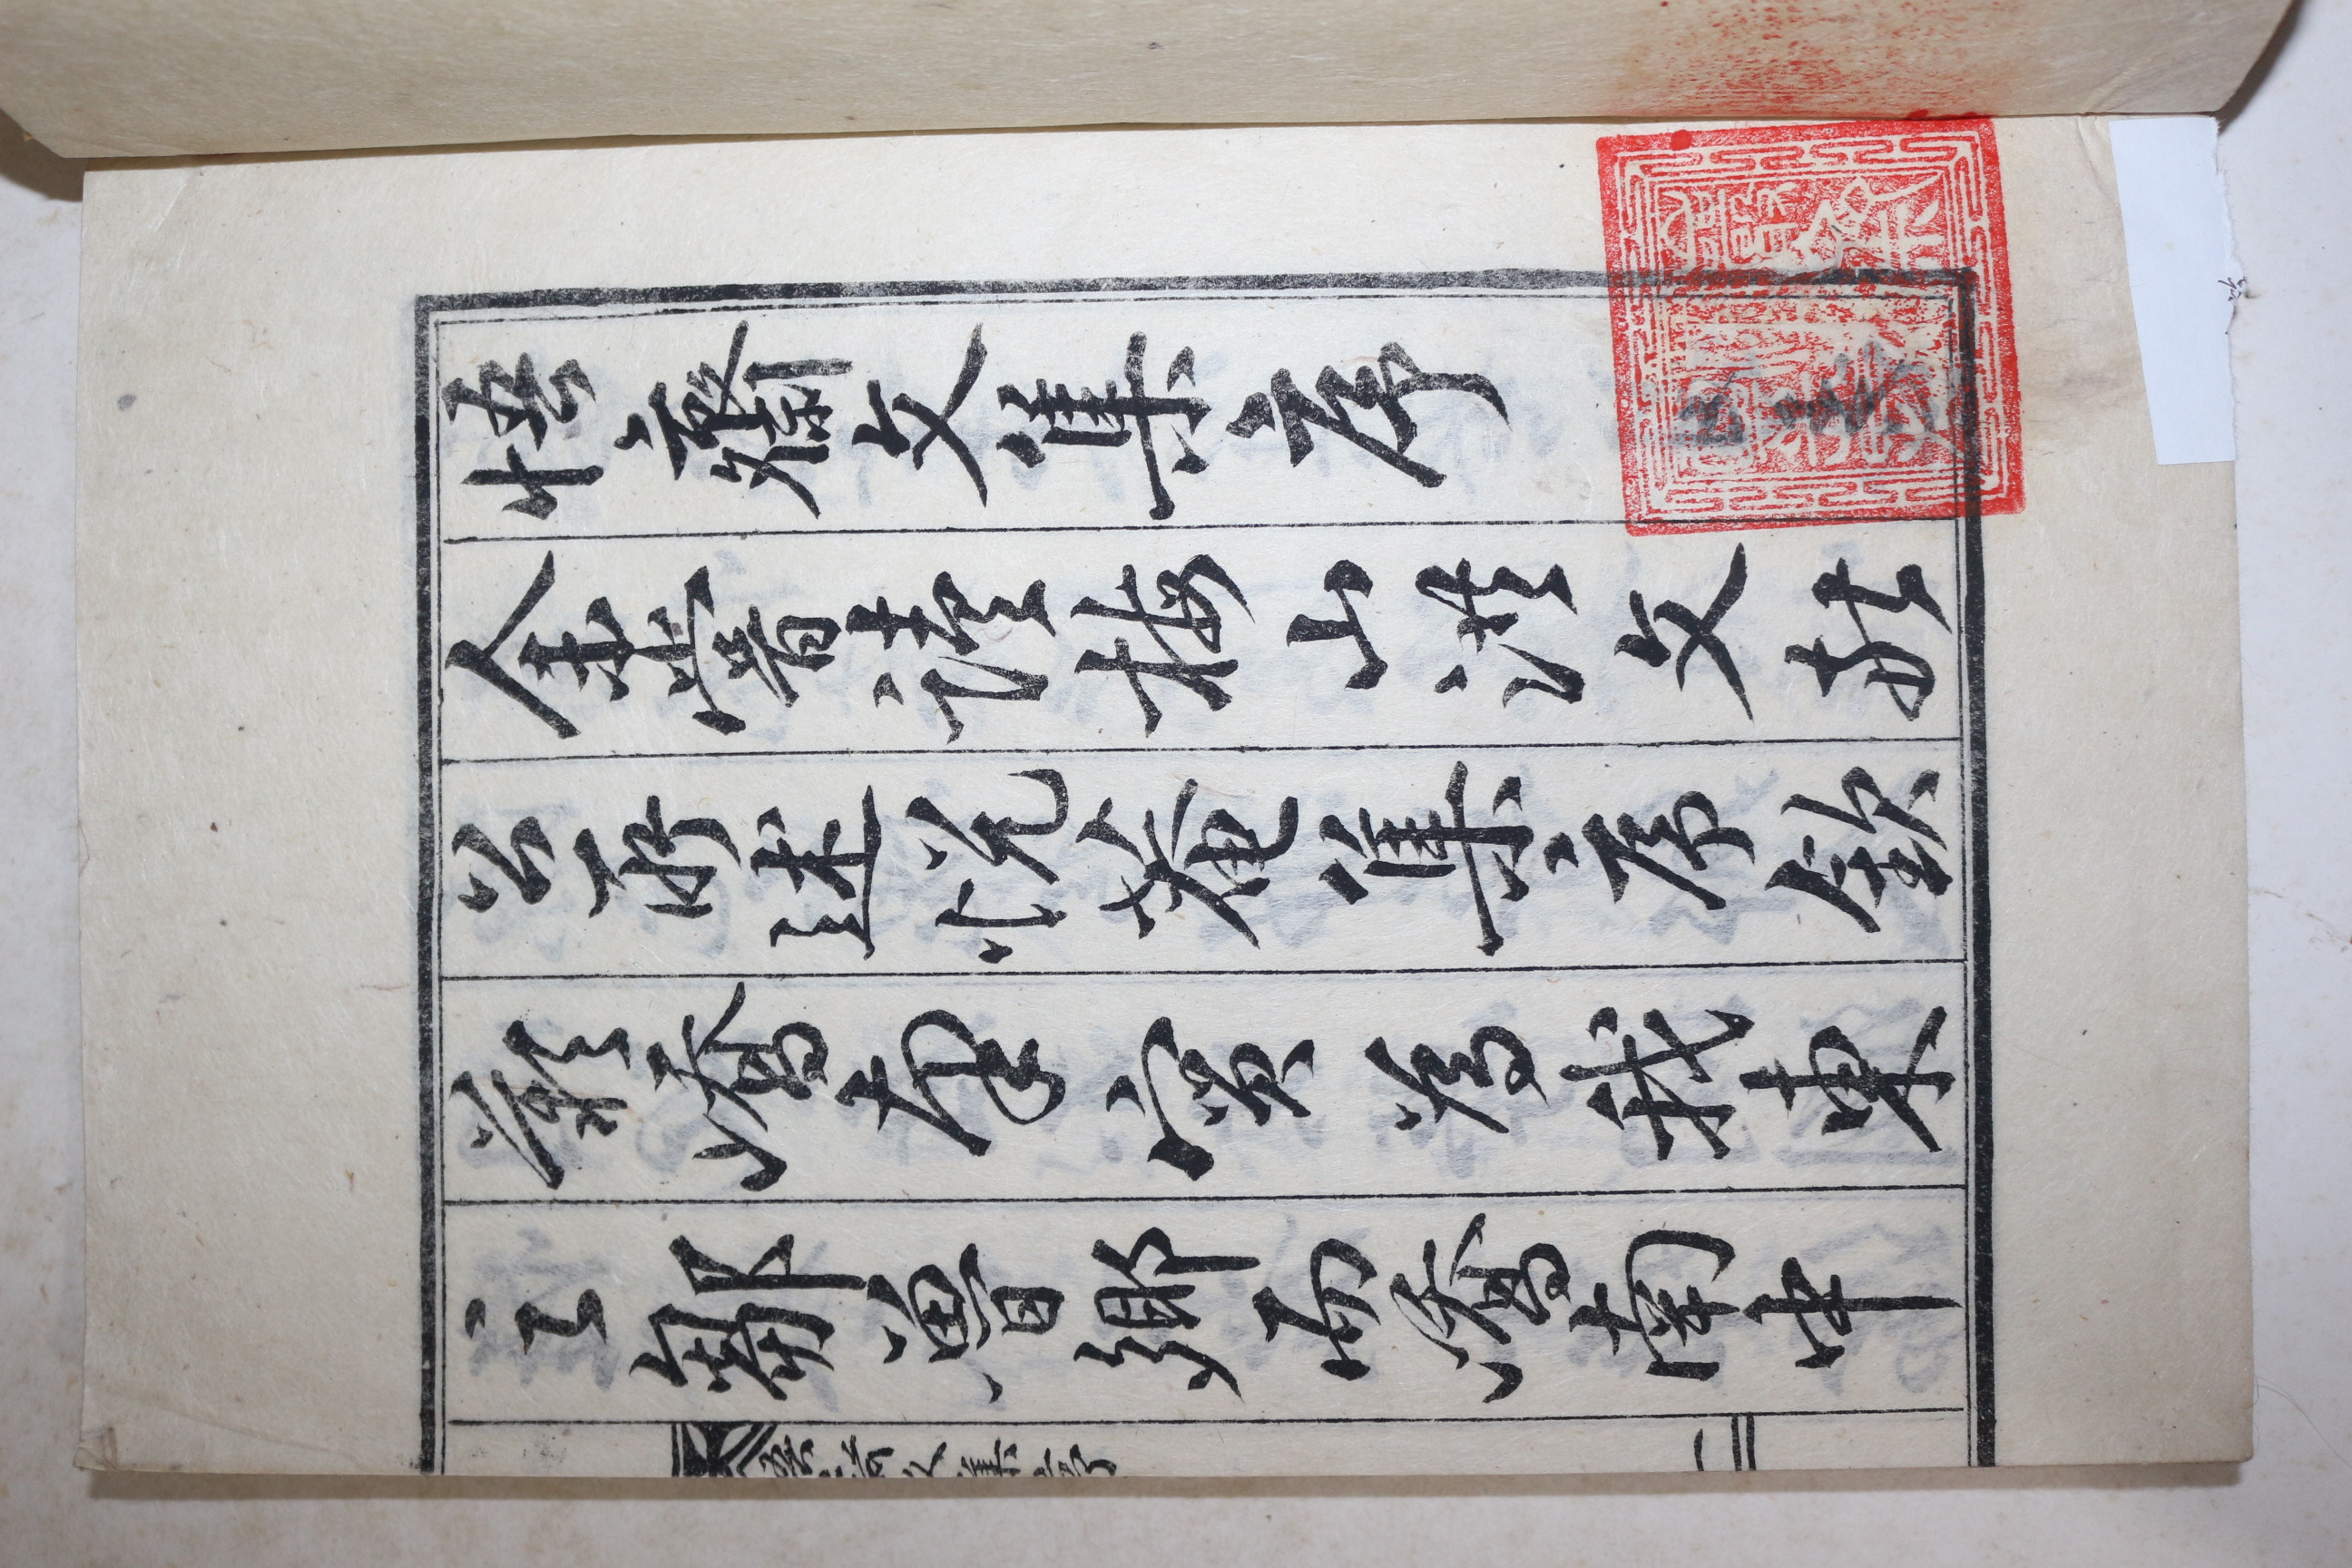 悟齋文集序
余嘗讀梅山洪文
公所述悅菴集序欽
歎嶠南實為我東
之鄒魯鄉而嶠南中
悟齋文集序
一